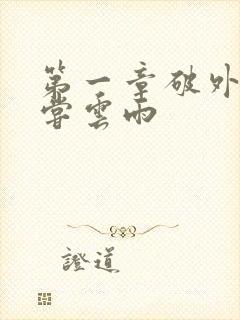 第一章破外
嘗雲雨
證道